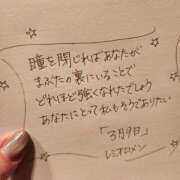 瞳を閉じればあなたが
まぶたの裏にいることで
どれほど強くなれたでしょう
あなたにとって私もそうでありたい
「3月9日」
レミオロメン